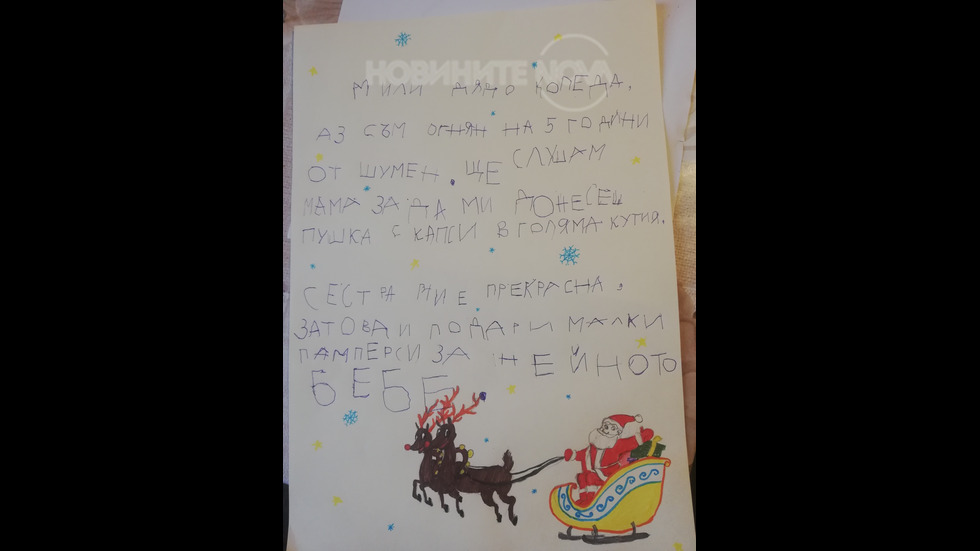 НОВИНИТЕ NOVA
МИЛИ ДЯДО КОЛЕДА,
АЗ СЪМ ОГНЯН НА 5 ГОДИНИ
ОТ ШУМЕН. ЩЕ СЛУШАМ
МАМА ЗА ДА МИ ДОНЕСЕШ
ПУШКА С КАПСИ В ГОЛЯМА КУТИЯ.
СЕСТРА МИ Е ПРЕКРАСНА.
ЗАТОВА И ПОДАРИ МАЛКИ
ПАМПЕРСИ ЗА НЕЙНОТО
БЕБЕ.